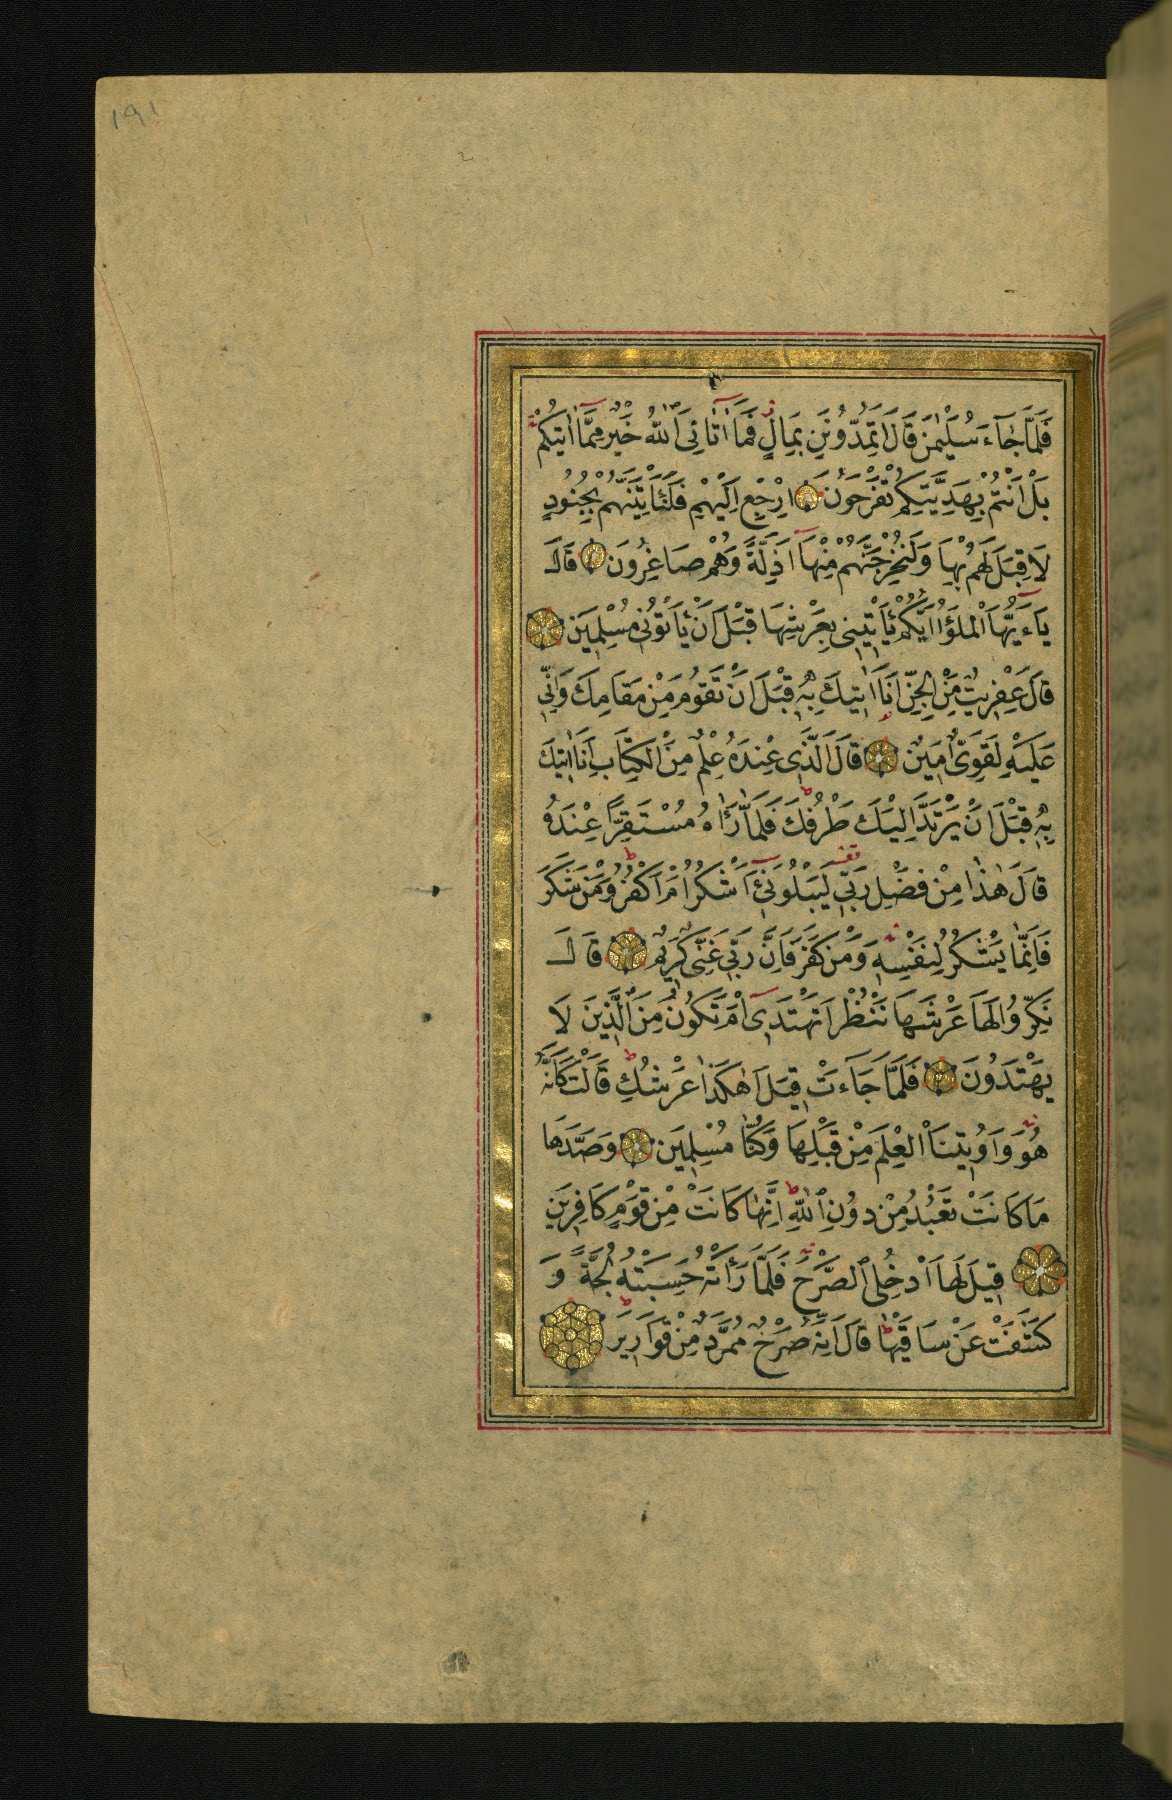 ١٩١
فَلَمَّا جَآءَ سُلَيْمٰنَ قَالَ اَتُمِدُّونَنِ بِمَالٍ فَمَآ اٰتَانِىَ اللّٰهُ خَيْرٌ مِمَّآ اٰتٰيكُمْ
بَلْ اَنْتُمْ بِهَدِيَّتِكُمْ تَفْرَحُونَ اِرْجِعْ اِلَيْهِمْ فَلَنَأْتِيَنَّهُمْ بِجُنُودٍ
لَا قِبَلَ لَهُمْ بِهَا وَلَنُخْرِجَنَّهُمْ مِنْهَآ اَذِلَّةً وَهُمْ صَاغِرُونَ قَالَ
يَآءَيُّهَا الْمَلَؤُا اَيُّكُمْ يَأْتِينِى بِعَرْشِهَا قَبْلَ اَنْ يَأْتُونِى مُسْلِمِينَ
قَالَ عِفْرِيتٌ مِنَ الْجِنِّ اَنَا اٰتِيكَ بِهِ قَبْلَ اَنْ تَقُومَ مِنْ مَقَامِكَ وَاِنِّى
عَلَيْهِ لَقَوِىٌّ اَمِينٌ قَالَ الَّذِى عِنْدَهُ عِلْمٌ مِنَ الْكِتَابِ اَنَا اٰتِيكَ
بِهِ قَبْلَ اَنْ يَرْتَدَّ اِلَيْكَ طَرْفُكَ فَلَمَّا رَأٰهُ مُسْتَقِرًّا عِنْدَهُ
قَالَ هٰذَا مِنْ فَضْلِ رَبِّى لِيَبْلُوَنِىٓ ءَاَشْكُرُ اَمْ اَكْفُرُ وَمَنْ شَكَرَ
فَاِنَّمَا يَشْكُرُ لِنَفْسِهِ وَمَنْ كَفَرَ فَاِنَّ رَبِّى غَنِىٌّ كَرِيمٌ قَالَ
نَكِّرُوا لَهَا عَرْشَهَا نَنْظُرْ اَتَهْتَدِىٓ اَمْ تَكُونُ مِنَ الَّذِينَ لَا
يَهْتَدُونَ فَلَمَّا جَآءَتْ قِيلَ اَهٰكَذَا عَرْشُكِ قَالَتْ كَاَنَّهُ
هُوَ وَاُوتِينَا الْعِلْمَ مِنْ قَبْلِهَا وَكُنَّا مُسْلِمِينَ وَصَدَّهَا
مَا كَانَتْ تَعْبُدُ مِنْ دُونِ اللّٰهِ اِنَّهَا كَانَتْ مِنْ قَوْمٍ كَافِرِينَ
قِيلَ لَهَا ادْخُلِى الصَّرْحَ فَلَمَّا رَأَتْهُ حَسِبَتْهُ لُجَّةً وَ
كَشَفَتْ عَنْ سَاقَيْهَا قَالَ اِنَّهُ صَرْحٌ مُمَرَّدٌ مِنْ قَوَارِيرَ